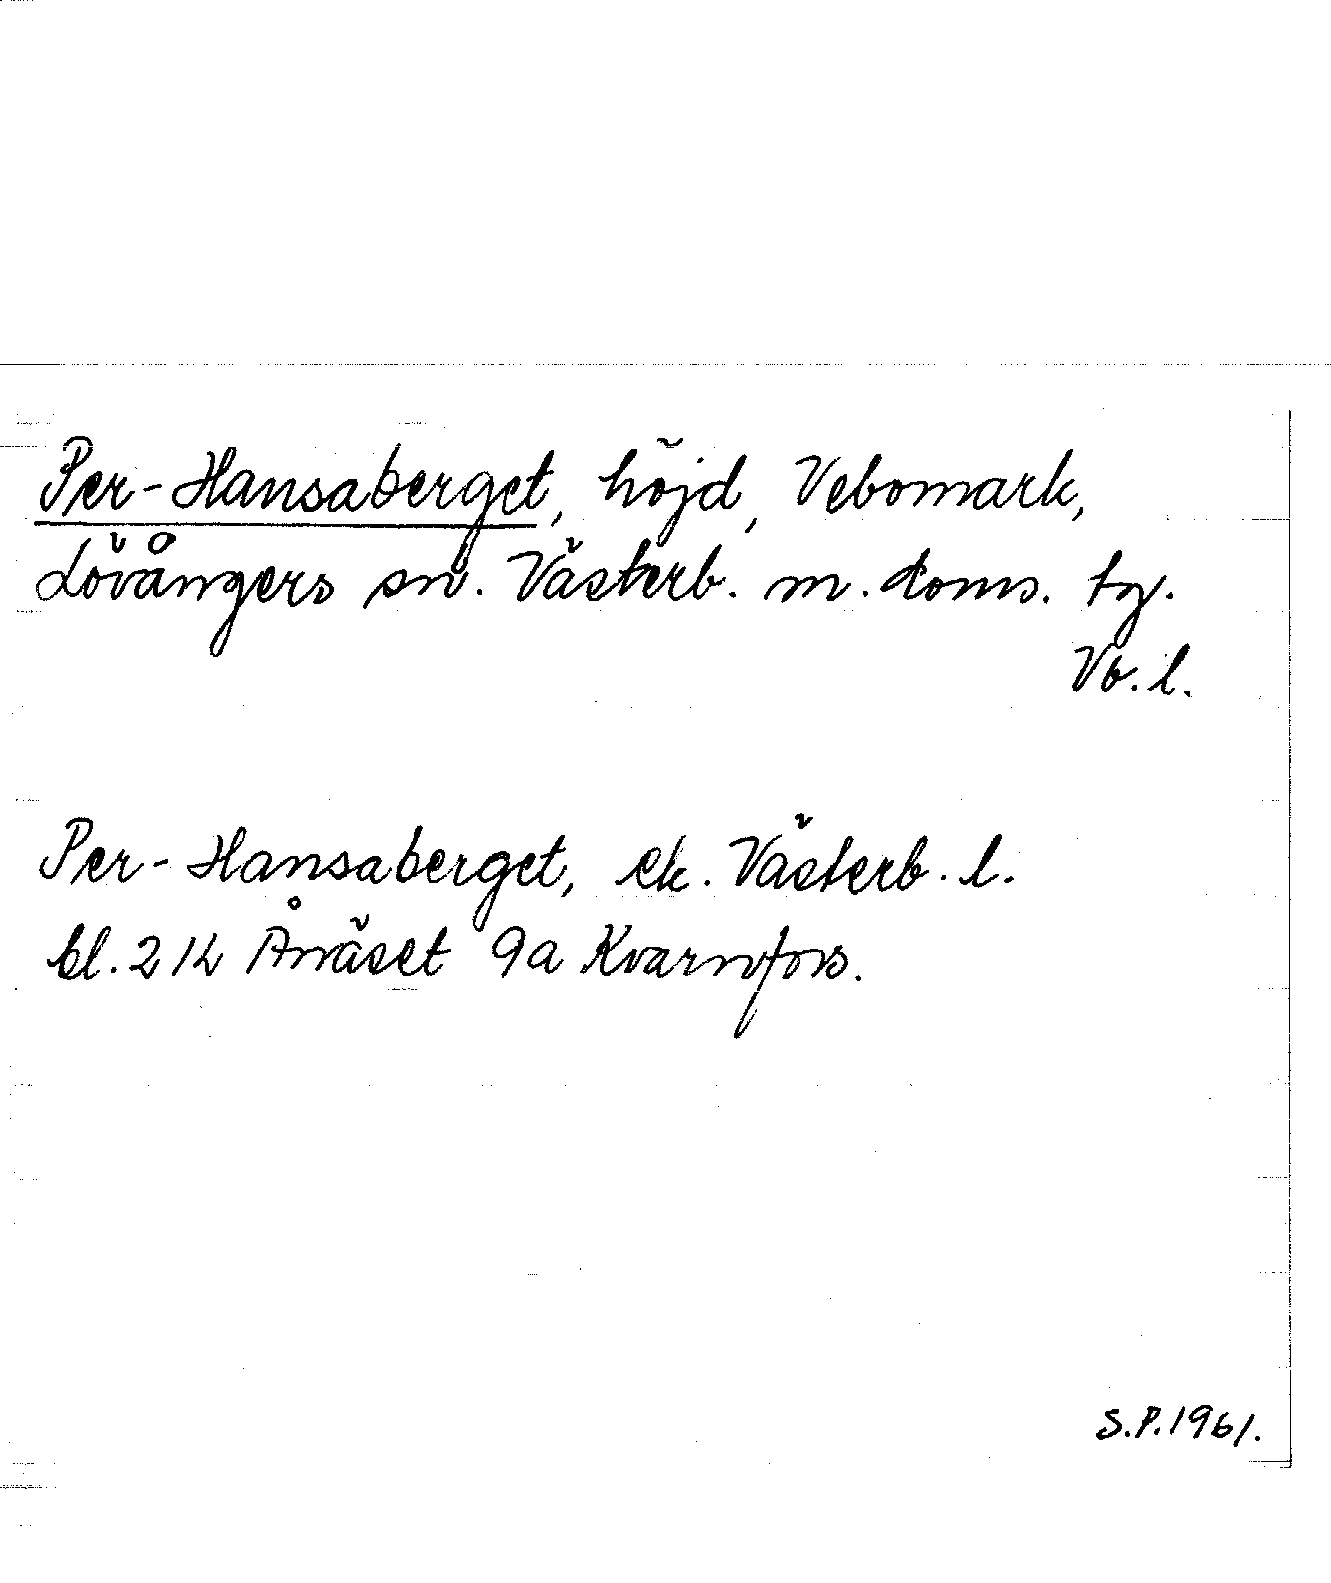 Per-Hansaberget, höjd, Vebomark,
Lövångers sn. Västerb. m. doms. tg.
Vb. l.
Per-Hansaberget, ek. Västerb. l.
bl. 21K Ånäset 9a Kvarnfors.
S.P. 1961.